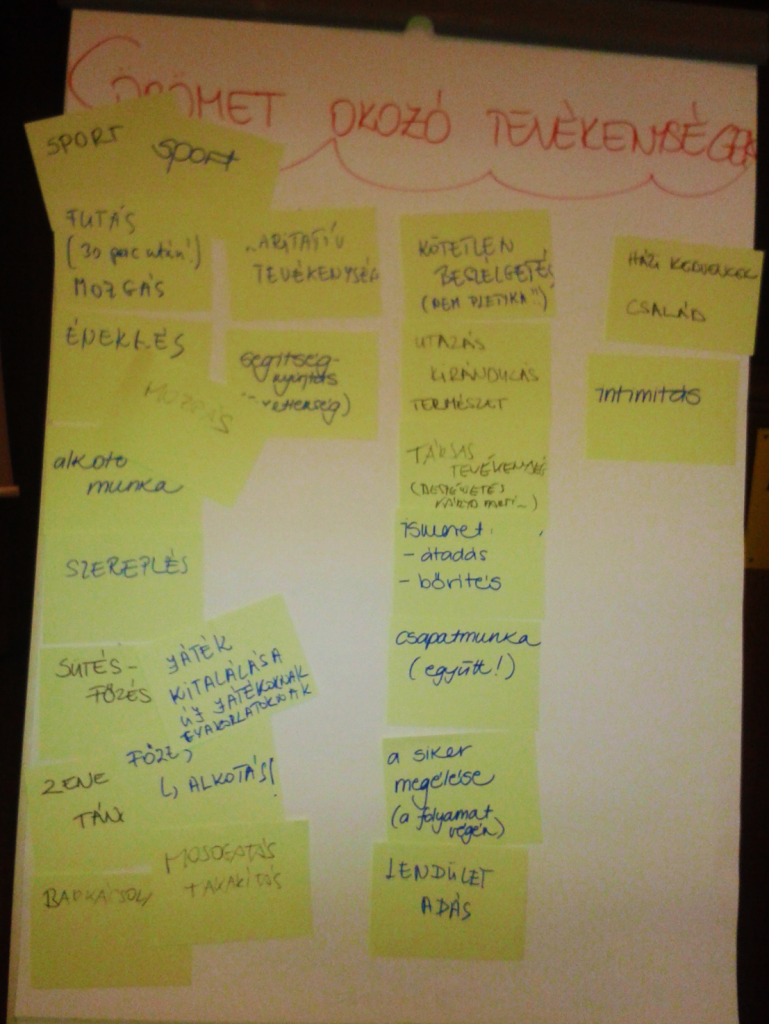 ÖRÖMET OKOZÓ TEVÉKENYSÉGEK
SPORT
sport
FUTÁS
(30 perc után!)
MOZGÁS
ÉNEKLÉS
MOZGÁS
alkotó
munka
SZEREPLÉS
SÜTÉS-
FŐZÉS
JÁTÉK
KITALÁLÁSA
ÚJ JÁTÉKOKNAK
GYAKORLATOKNAK
ZENE
TÁNC
FŐZÉS
↳ ALKOTÁS!
BARKÁCSOLÁS
MOSOGATÁS
TAKARÍTÁS
KARITATÍV
TEVÉKENYSÉG
segítség-
nyújtás
KÖTETLEN
BESZÉLGETÉS
(NEM PLETYKA")
UTAZÁS
KIRÁNDULÁS
TERMÉSZET
TÁRSAS
TEVÉKENYSÉG
ismeret
- átadás
- bővítés
csapatmunka
(együtt!)
a siker
megélése
(a folyamat
végén)
LENDÜLET
ADÁS
HÁZI KEDVENCEK
CSALÁD
intimitás